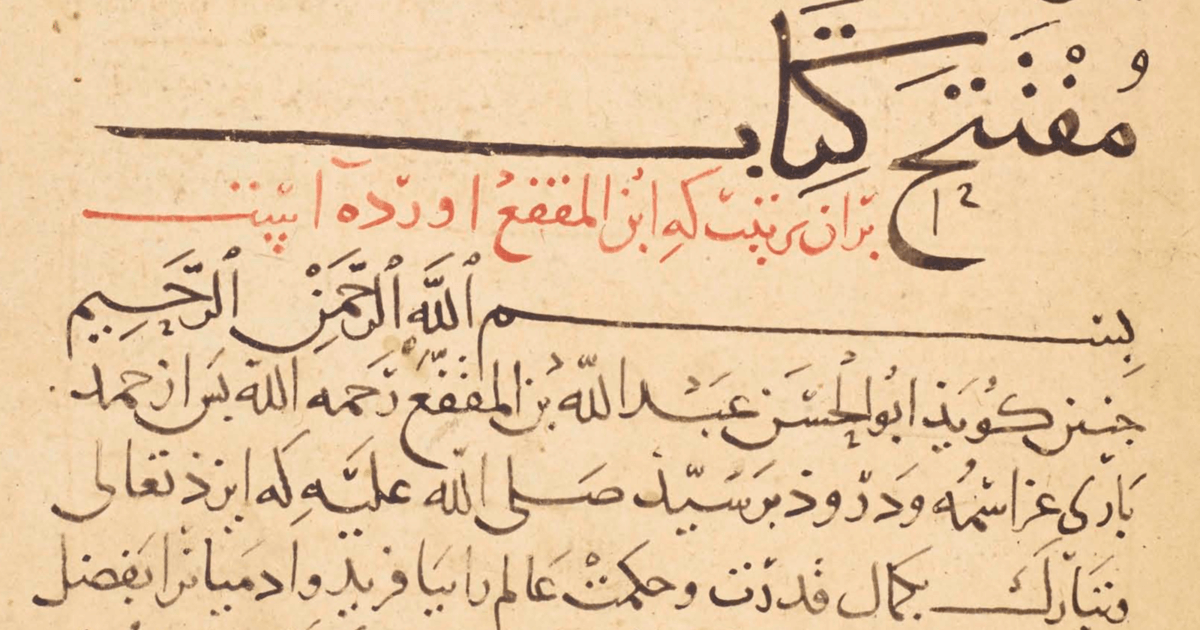 مُفْتَتَح كِتَاب
بر ان ترتیب که ابن المقفع اورده آست
بسم الله الرحمن الرحیم
جنین کویذ ابوالحسن عبد الله بن المقفع رحمه الله بس از حمد
باری عز اسمه و دروذ بر سیّد صلی الله علیه که ایزذ تعالی
و تبارک بکمال قدرت و حکمت عالم را بیافریذ و ادمیانرا بفضل